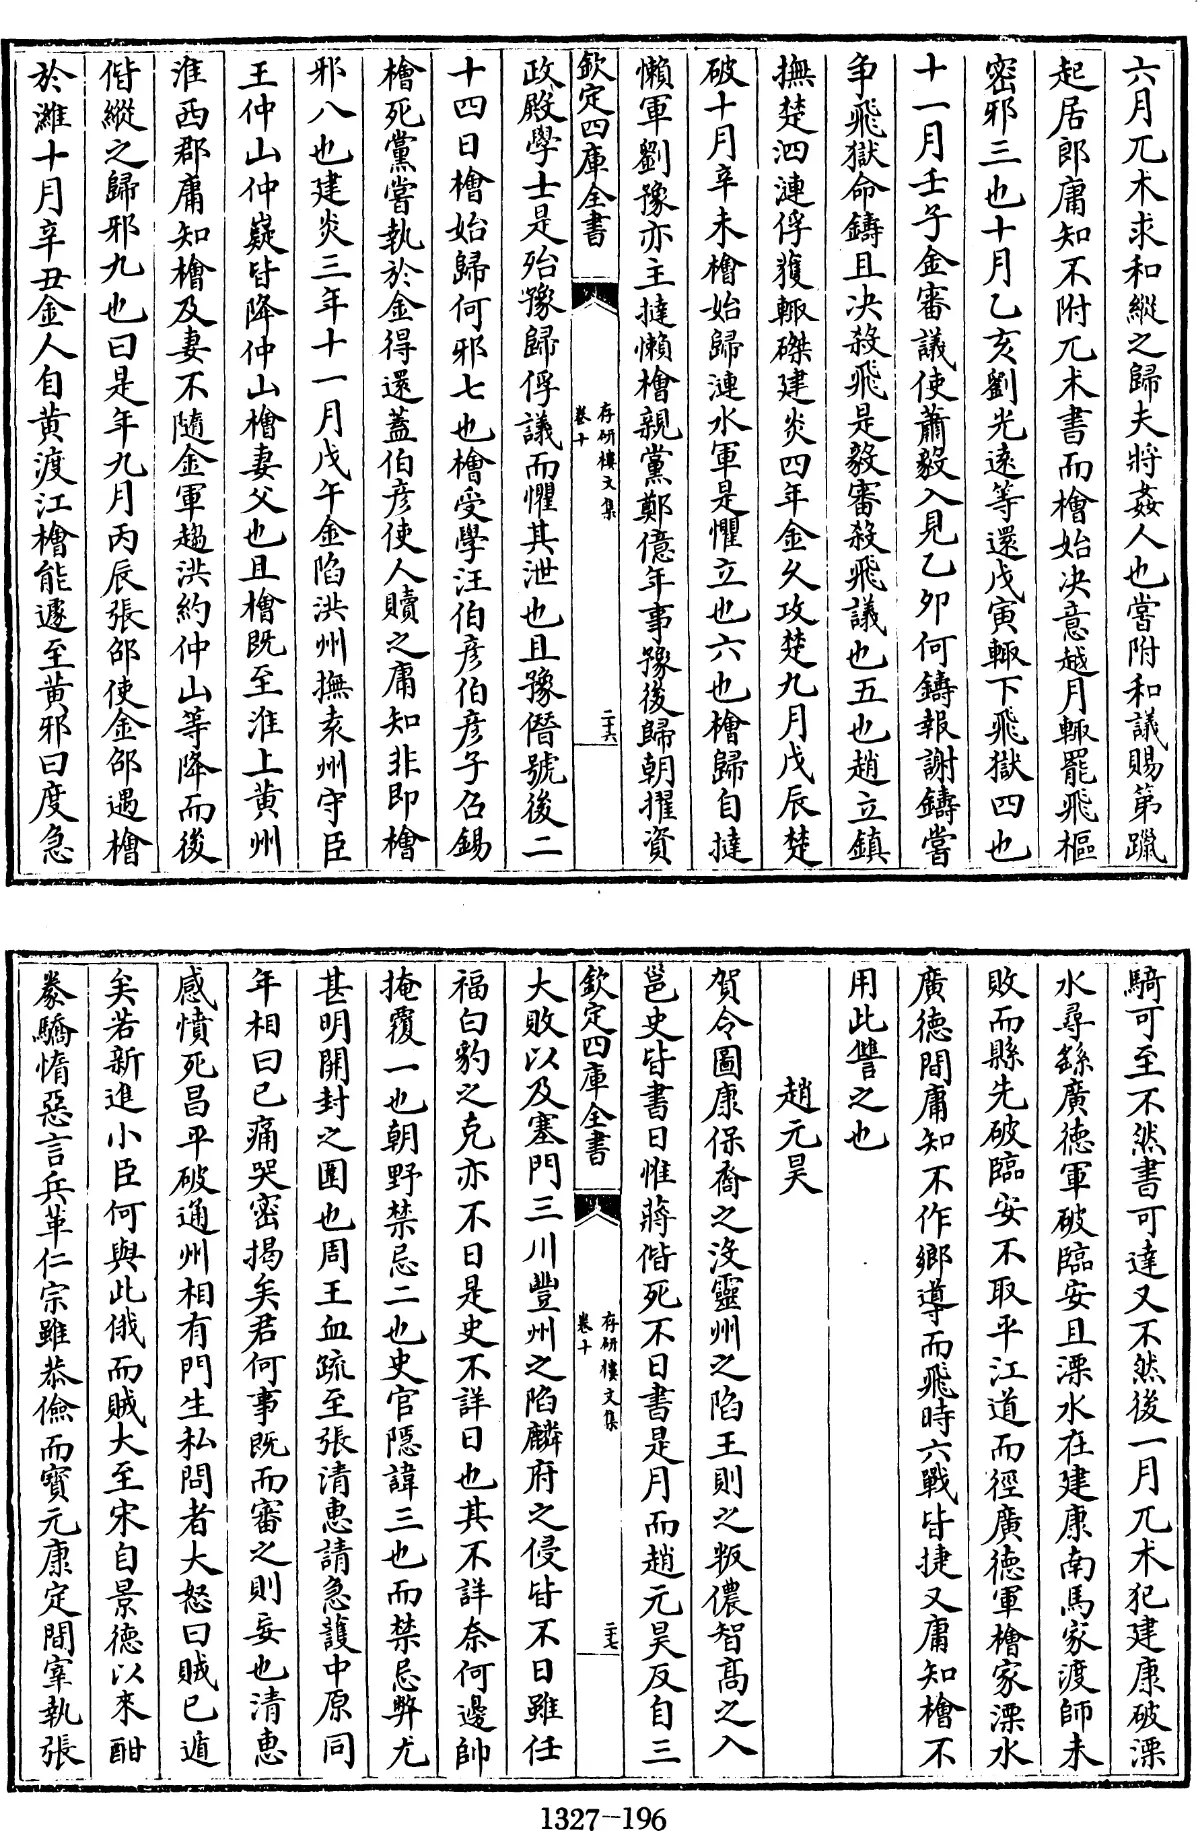 六月兀术求和縱之歸夫將姦人也嘗附和議賜第躐
起居郎庸知不附兀术書而檜始决意越月輙罷飛樞
密邪三也十月乙亥劉光遠等還戊寅輙下飛獄四也
十一月壬子金審議使蕭毅入見乙卯何鑄報謝鑄嘗
争飛獄命鑄且决殺飛是毅審殺飛議也五也趙立鎮
撫楚泗漣俘獲輙磔建炎四年金乆攻楚九月戊辰楚
破十月辛未檜始歸漣水軍是懼立也六也檜歸自撻
懶軍劉豫亦主撻懶檜親黨鄭億年事豫後歸朝擢資
欽定四庫全書
存研樓文集
卷十
二十六
政殿學士是殆豫歸俘議而懼其泄也且豫僭號後二
十四日檜始歸何邪七也檜受學汪伯彦伯彦子召錫
檜死黨嘗執於金得還蓋伯彦使人贖之庸知非即檜
邪八也建炎三年十一月戊午金陷洪州撫袁州守臣
王仲山仲嶷皆降仲山檜妻父也且檜既至淮上黄州
淮西郡庸知檜及妻不隨金軍趨洪約仲山等降而後
偕縱之歸邪九也曰是年九月丙辰張邵使金邵遇檜
於濰十月辛丑金人自黄渡江檜能遽至黄邪曰度急
騎可至不然書可達又不然後一月兀术犯建康破溧
水尋繇廣徳軍破臨安且溧水在建康南馬家渡師未
敗而縣先破臨安不取平江道而徑廣徳軍檜家溧水
廣徳間庸知不作鄉導而飛時六戰皆捷又庸知檜不
用此讐之也
趙元昊
賀令圖康保裔之沒靈州之陷王則之叛儂智髙之入
邕史皆書日惟蔣偕死不日書是月而趙元昊反自三
欽定四庫全書
存研樓文集
卷十
二十七
大敗以及塞門三川豐州之陷麟府之侵皆不日雖任
福白豹之克亦不日是史不詳日也其不詳奈何邊帥
掩覆一也朝野禁忌二也史官隱諱三也而禁忌弊尤
甚明開封之圍也周王血疏至張清惠請急䕶中原同
年相曰已痛哭密揭矣君何事既而審之則妄也清惠
感憤死昌平破通州相有門生私問者大怒曰賊已遁
矣若新進小臣何與此俄而賊大至宋自景徳以來酣
豢驕惰惡言兵革仁宗雖恭儉而寳元康定間宰執張
1327-196